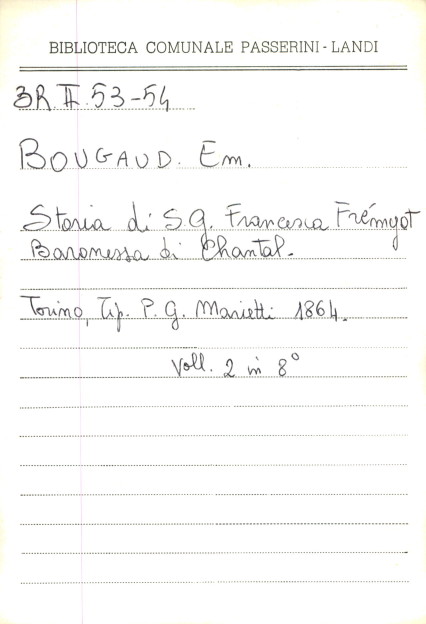 BIBLIOTECA COMUNALE PASSERINI - LANDI
3R. II. 53-54
BOUGAUD. Em.
Storia di S G. Francesca Frémyot
Baronessa di Chantal.
Torino, Tip. P. G. Marietti 1864.
Voll. 2 in 8°